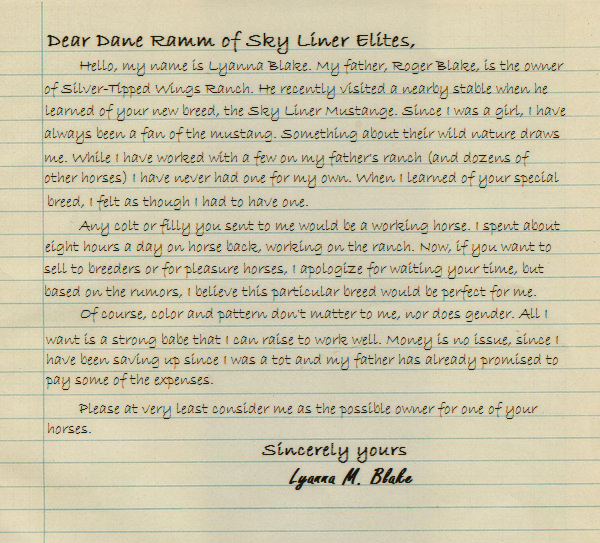 Dear Dane Ramm of Sky Liner Elites,
Hello, my name is Lyanna Blake. My father, Roger Blake, is the owner
of Silver-Tipped Wings Ranch. He recently visited a nearby stable when he
learned of your new breed, the Sky Liner Mustange. Since I was a girl, I have
always been a fan of the mustang. Something about their wild nature draws
me. While I have worked with a few on my father's ranch (and dozens of
other horses) I have never had one for my own. When I learned of your special
breed, I felt as though I had to have one.
Any colt or filly you sent to me would be a working horse. I spent about
eight hours a day on horse back, working on the ranch. Now, if you want to
sell to breeders or for pleasure horses, I apologize for waiting your time, but
based on the rumors, I believe this particular breed would be perfect for me.
Of course, color and pattern don't matter to me, nor does gender. All I
want is a strong babe that I can raise to work well. Money is no issue, since I
have been saving up since I was a tot and my father has already promised to
pay some of the expenses.
Please at very least consider me as the possible owner for one of your
horses.
Sincerely yours
Lyanna M. Blake